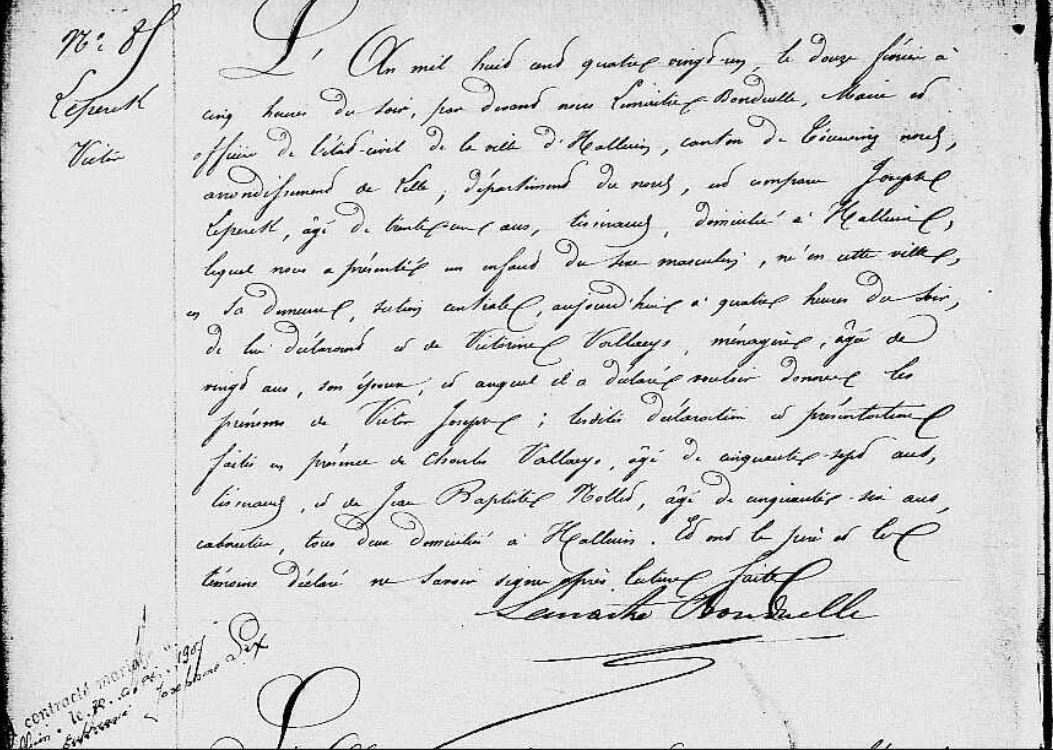 N° 85
Lepereck
Victor
L'An mil huit cent quatre-vingt-un, le douze février à
cinq heures du soir, par devant nous Lemaitre-Bonduelle, Maire et
officier de l'état-civil de la ville d'Halluin, canton de Tourcoing nord,
arrondissement de Lille, département du nord, est comparu Joseph
Lepereck, âgé de trente-un ans, tisserand, domicilié à Halluin,
lequel nous a présenté un enfant du sexe masculin, né en cette ville,
en sa demeure, section centrale, aujourd'hui à quatre heures du soir,
de lui déclarant et de Victorine Vallaeys, ménagère, âgée de
vingt ans, son épouse, et auquel il a déclaré vouloir donner les
prénoms de Victor Joseph ; lesdites déclaration et présentation
faites en présence de Charles Vallaeys, âgé de cinquante-sept ans,
tisserand, et de Jean Baptiste Nollet, âgé de cinquante-six ans,
cabaretier, tous deux domiciliés à Halluin. Et ont le père et les
témoins déclaré ne savoir signer après lecture faite
Lemaitre Bonduelle
contracté mariage
le 1907
Joséphine Lex
L'